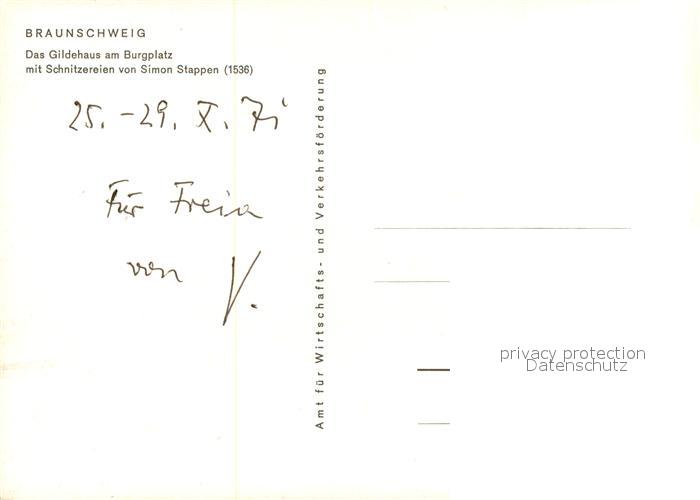 BRAUNSCHWEIG
Das Gildehaus am Burgplatz
mit Schnitzereien von Simon Stappen (1536)
25. – 29. X. 71
Für Freia
von V.
Amt für Wirtschafts- und Verkehrsförderung
privacy protection
Datenschutz